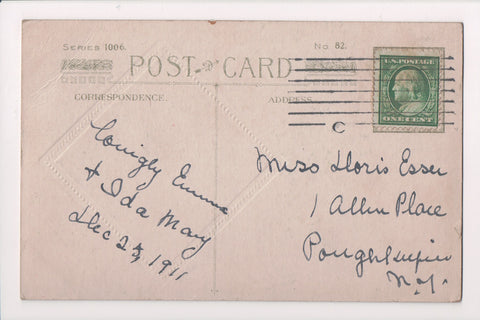 SERIES 1006.
No. 82.
POST CARD
CORRESPONDENCE.
ADDRESS
U.S. POSTAGE
ONE CENT
C
Emma
& Ida May
Dec 25, 1911
Miss Doris Esser
1 Allen Place
Poughkeepsie
N.Y.